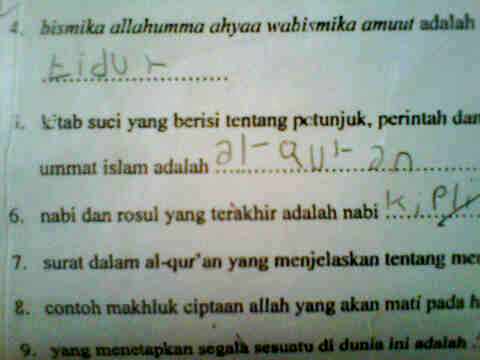 4. bismika allahumma ahyaa wabismika amuut adalah
tidur
kitab suci yang berisi tentang petunjuk, perintah dan
ummat islam adalah al-qur-an
6. nabi dan rosul yang terakhir adalah nabi
7. surat dalam al-qur'an yang menjelaskan tentang me
8. contoh makhluk ciptaan allah yang akan mati pada h
9. yang menetapkan segala sesuatu di dunia ini adalah